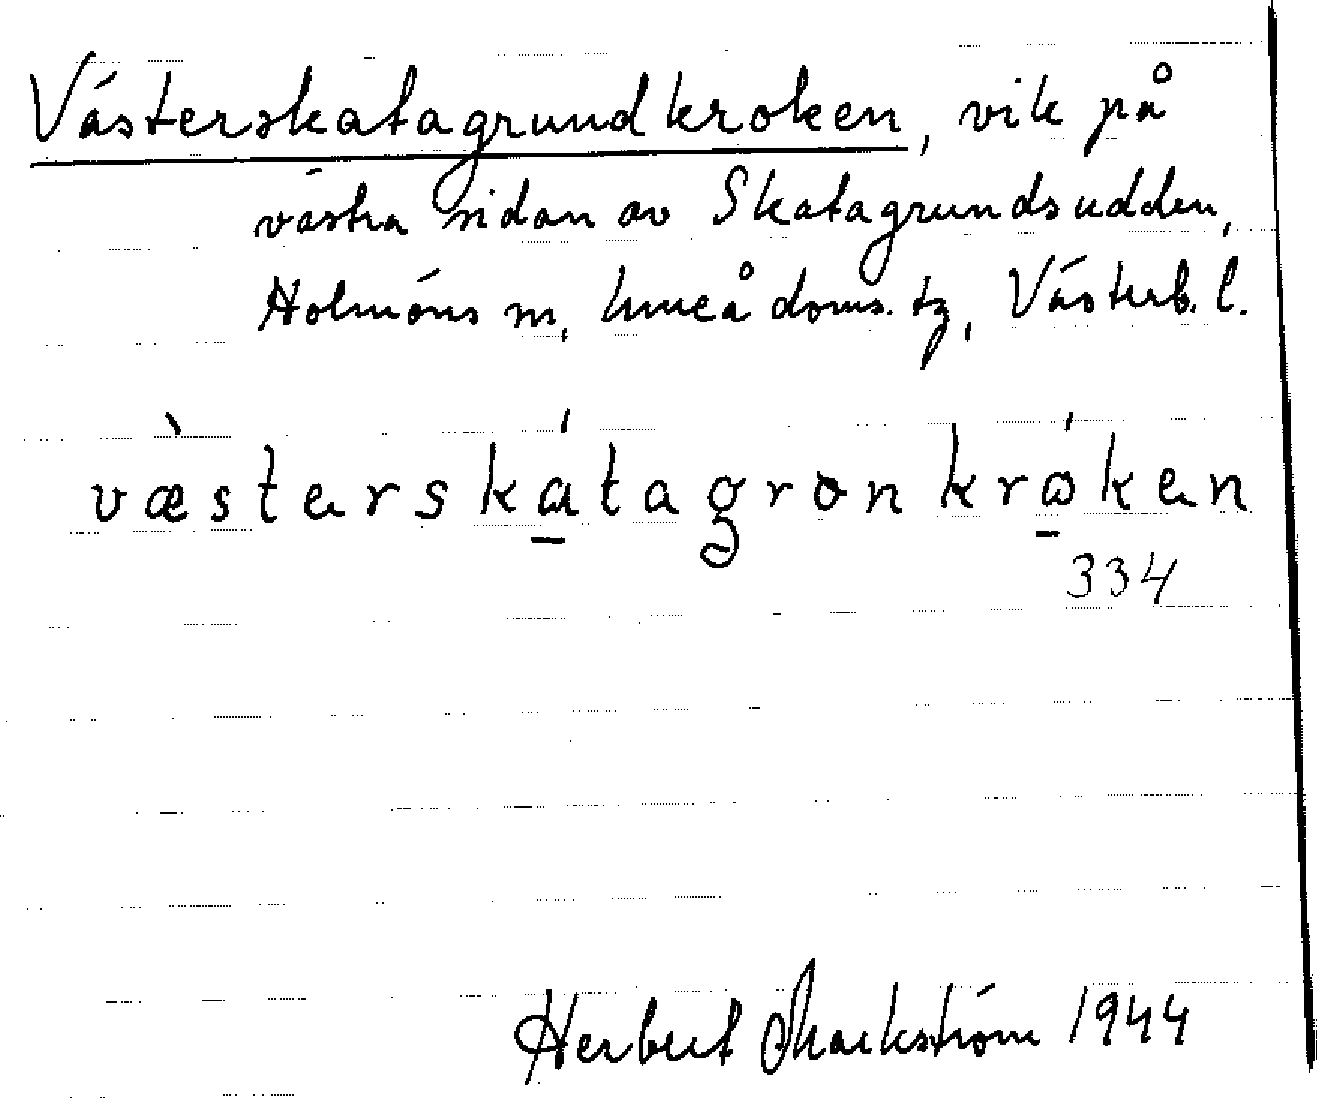 Västerskatagrundkroken, vik på
västra sidan av Skatagrundsudden,
Holmöns sn, Umeå doms. tg, Västerb. l.
væ̀sterskátagronkrόken
334
Herbert 1944